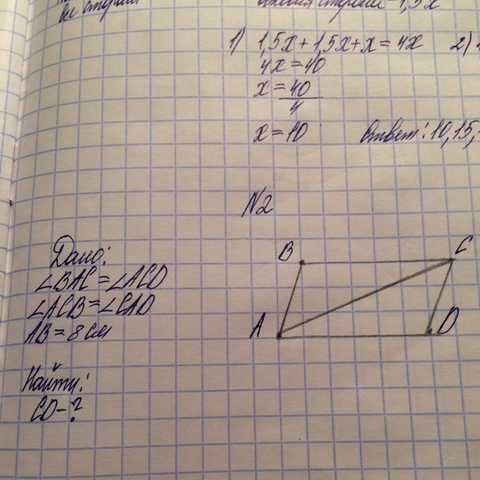 1) 1,5x + 1,5x + x = 4x 2)
4x = 40
x = 40
4
x = 10 Ответ: 10, 15,
N2
Дано:
∠BAC = ∠ACD
∠ACB = ∠CAD
AB = 8 см
Найти:
CD - ?
B C
A D